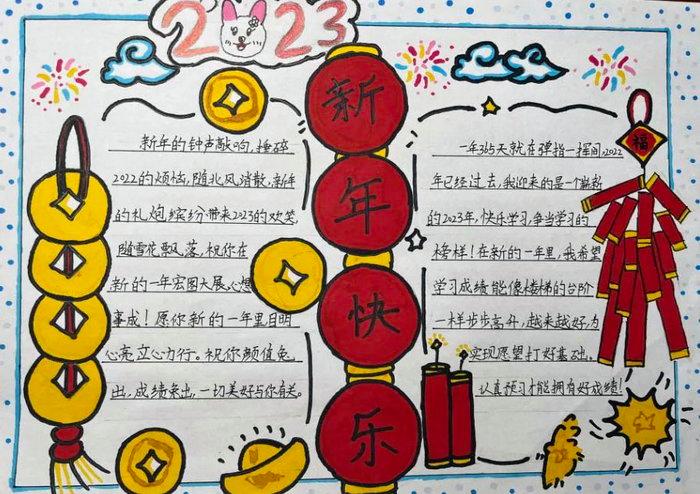 2023
新
年
快
乐
新年的钟声敲响,捶碎
2022的烦恼,随北风消散,新年
的礼炮缤纷带来2023的欢笑,
随雪花飘落,祝你在
新的一年宏图大展,心想
事成!愿你新的一年里目明
心亮立心力行。祝你颜值兔
出,成绩兔出,一切美好与你有关。
福
一年365天就在弹指一挥间,2022
年已经过去,我迎来的是一个崭新
的2023年,快乐学习,争当学习的
榜样!在新的一年里,我希望
学习成绩能像楼梯的台阶
一样步步高升,越来越好,为
实现愿望打好基础。
认真预习才能拥有好成绩!